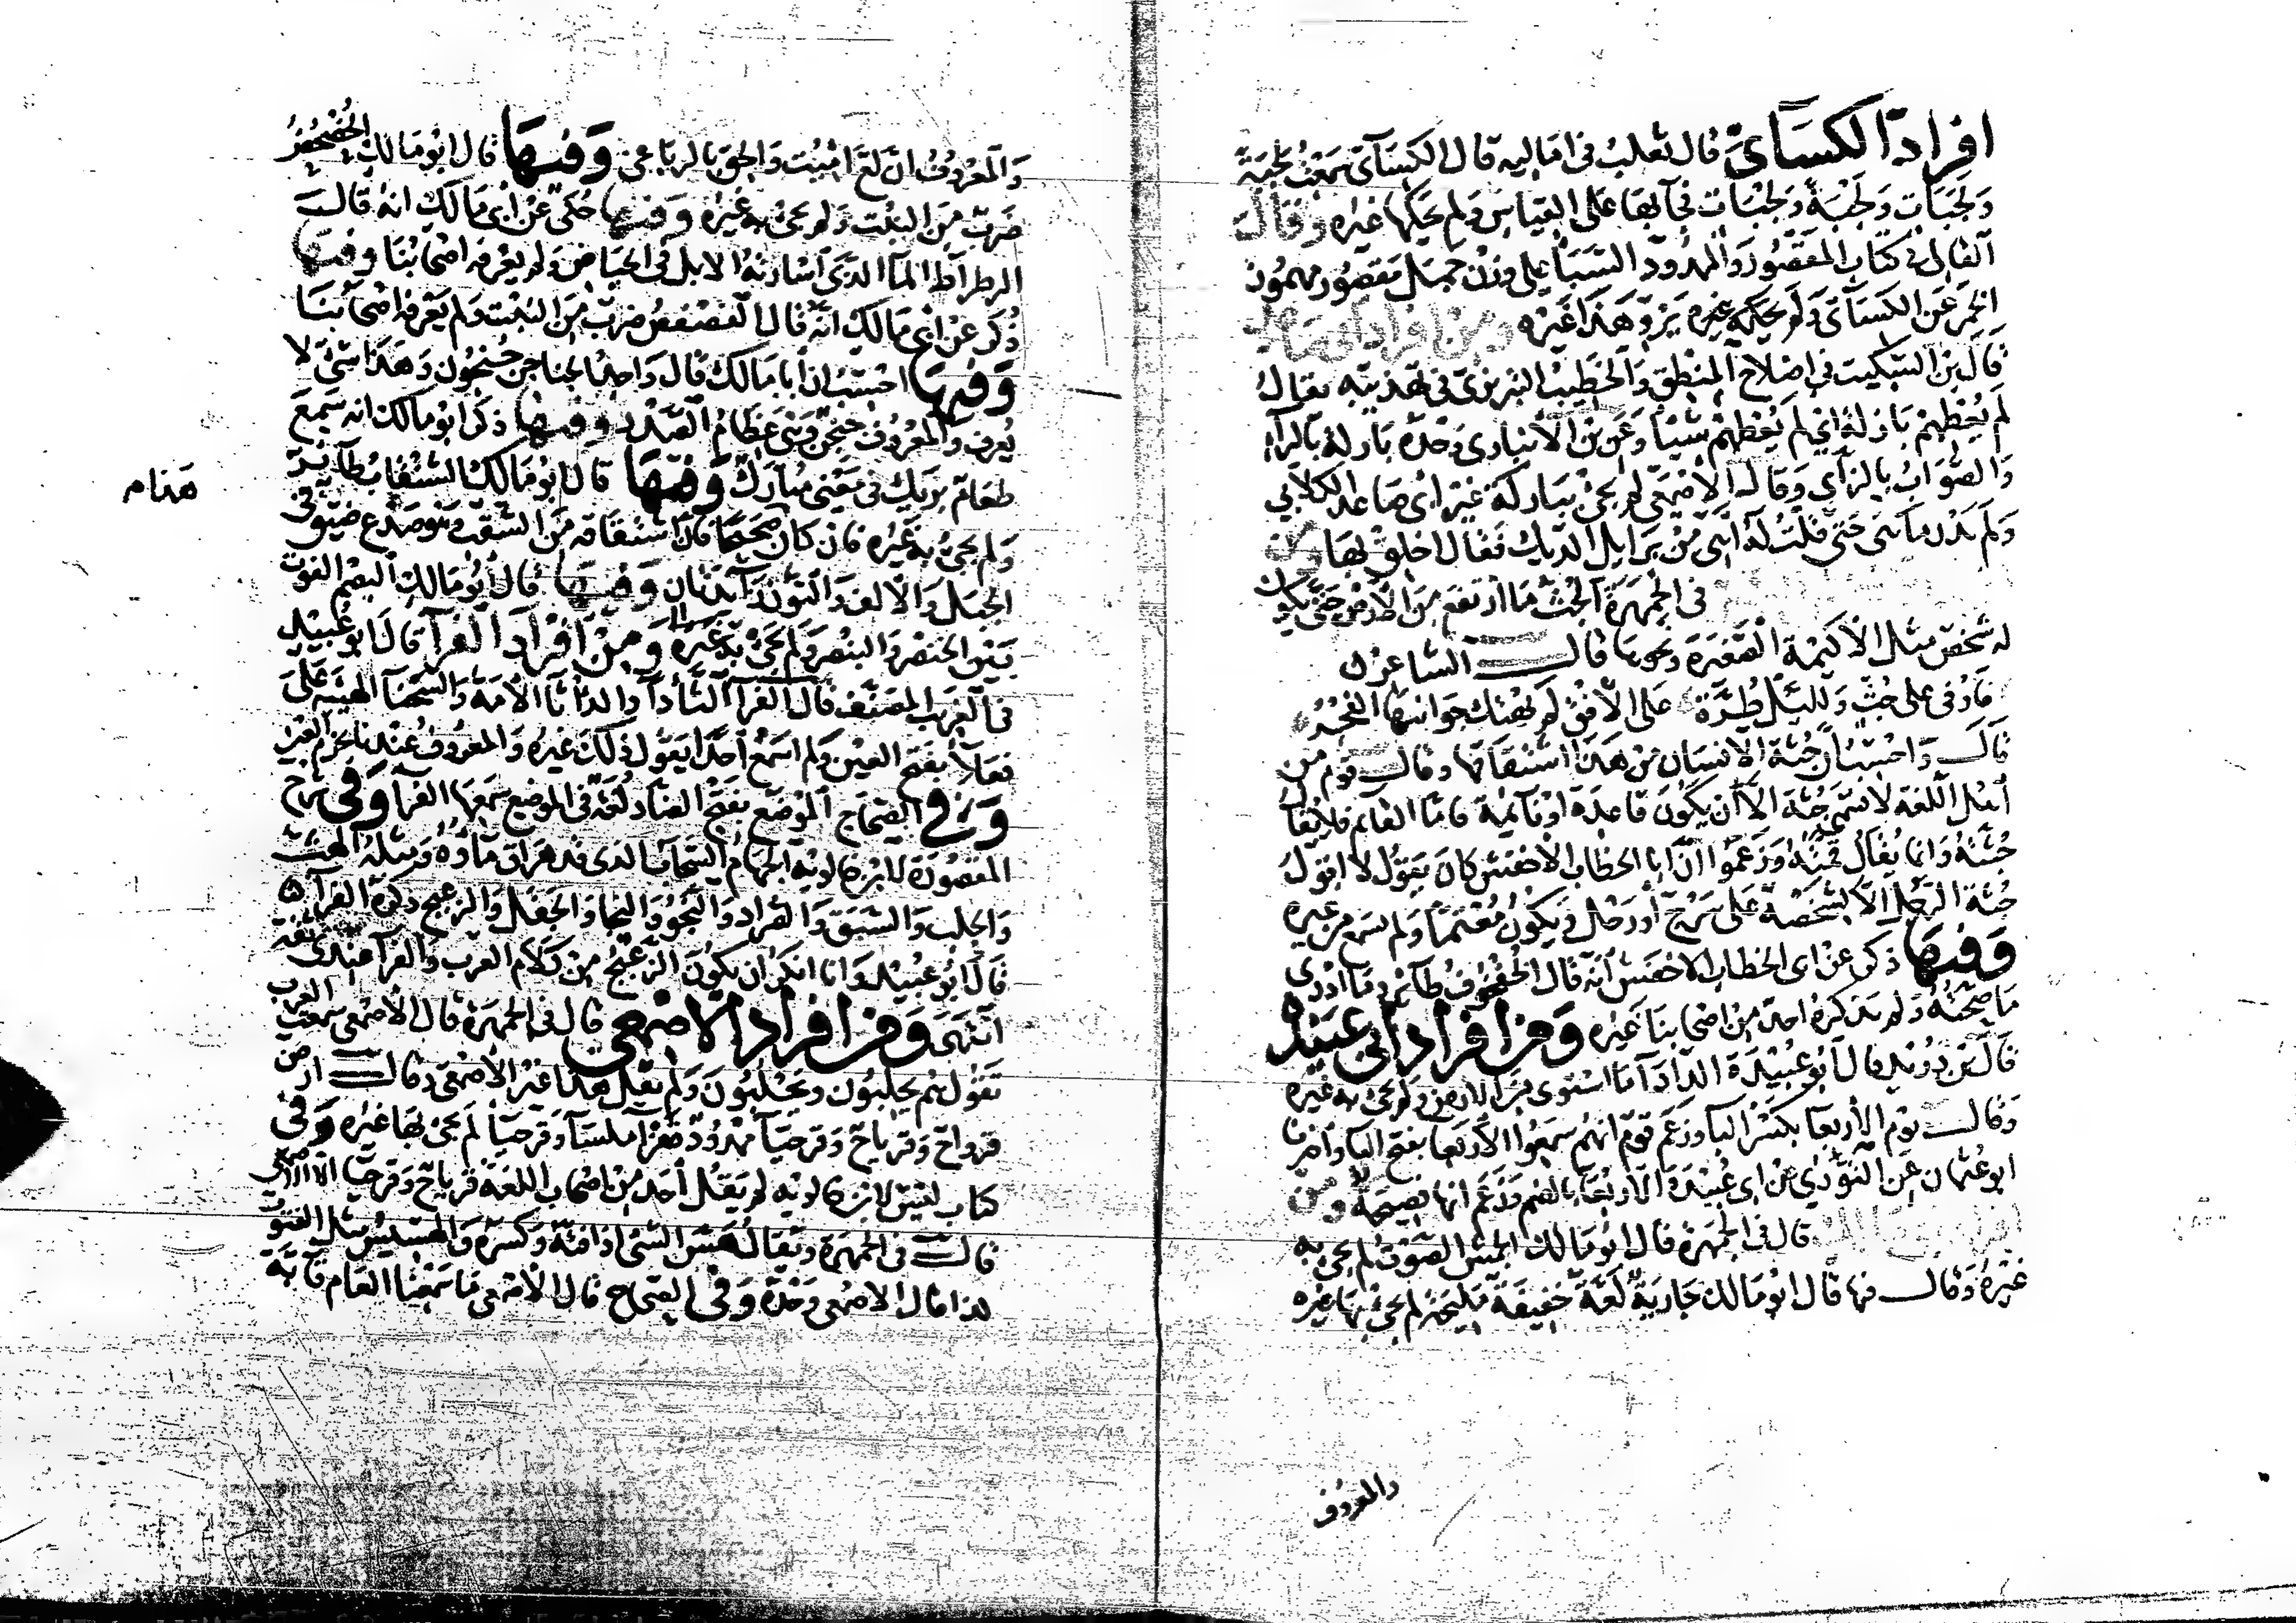 افراد الكسائ قال ثعلب في اماليه قال الكسائ سمعت لجبة
ولجبات ولجبة ولجبات فجا بها على القياس ولم يحكها غيره وقال
القالى في كتاب المقصور والممدود السبأ على وزن جبل مقصور مهموز
الخمر عن الكسائ ولم يحكه غيره يرو هذا غيره ومن افراد ابى صاعد
قال بن السكيت في اصلاح المنطق والخطيب التبريزى فى تهذيبه يقال
لم يعظهم بازلة اي لم يعظهم شيئا وعن بن الانباري وحده بارلة بالرآ
والصواب بالزاي وقال الاصمعي لم يجئ ببارلة غير ابى صاعد الكلابي
ولم يدر ما هى حتى قلت له اهى من برايل الديك فقال اخلق بها ومن
في الجمهرة الجث ما ارتفع من الارض حتى يكون
له شخص مثل الاكيمة الصغيرة ونحوها قال الشاعر
فاوفى على جث ولليل طرة على الافق لم يهتك جوانبها الفجر
قال واحسب ان جثة الانسان من هذا اشتقاقها وقال قوم من
اهل اللغة لا تسمى جثة الا ان يكون قاعدة او نآئمة فاما القائم فلا يقال
جثته وانما يقال قمته وزعموا ان ابا الخطاب الاخفش كان يقول لا اقول
جثة الرجل الا لشخصه على سرج او رحل ويكون معتما ولم يسمع من غيره
وفيها ذكر عن ابى الخطاب الاخفش انه قال الخفخوف طائر وما ادرى
ما صحته ولم يذكره احد من اصحابنا غيره ومن افراد ابى عبيدة
قال بن دريد قال ابو عبيدة الدادآ ما استوى من الارض ولم يجئ به غيره
وقال يوم الاربعا بكسر البا وزعم قوم انهم سمعوا الاربعا بفتح البا واخبرنا
ابو عثمان عن التوزي عن ابى عبيدة الاربعا بالضم وزعم انها فصيحة ومن
قال في الجمهرة قال ابو مالك الجمش الصوت لم يجئ به
غيره وقال فيها قال ابو مالك جارية لعة خفيفة مليحة لم يجئ بها غيره
والمعروف
والمعروف ان لع اميت والحق بالرباعي وفيها قال ابو مالك الخضخضر
ضرب من النبت ولم يجئ به غيره وفيها حكى عن ابى مالك انه قال
الرطراط المآ الذى اسارته الابل فى الحياض ولم يعرفه اصحابنا وفيها
ذكر عن ابى مالك انه قال القصقص ضرب من النبت ولم يعرفه اصحابنا
وفيها احسب ان ابا مالك قال واحد الجناجن جنجون وهذا شئ لا
يعرف والمعروف جنجن وهى عظام الصدر وفيها ذكر ابو مالك انه سمع
طعام بريك في معنى مبارك وفيها قال ابو مالك الشنقاب طآئر
ولم يجئ به غيره فان كان صحيحا فان اشتقاقه من الشقب وهو صدع ضيق فى
الجبل والالف والنون زآئدتان وفيها قال ابو مالك البصم الفوت
بين الخنصر والبنصر ولم يجئ به غيره ومن افراد الفرآ قال ابو عبيد
فى الغريب المصنف قال الفرآ الثأدآ والدأثا الامة والسحنآ الهيئة على
فعلآ بفتح العين ولم اسمع احدا يقول ذلك غيره والمعروف عندنا بجزم العين
وفى الصحاح الموضع بفتح الضاد لغة في الموضع سمعها الفرآ وفى شرح
المقصورة لابن خالويه الجهام السحاب الذى قد هراق مآءه ومثله الهف
والجلب والسيق والصراد والنجو والنجا والجفل والزعبج ذكره الفرآ
قال ابو عبيد وانا انكر ان يكون الزعبج من كلام العرب والفرآ عندى ثقة
انتهى ومن افراد الاصمعي قال في الجمهرة قال الاصمعي سمعت العرب
تقول هم يحلبون ويحلبون ولم يقل هذا غير الاصمعى وقال ارض
قرواح وقرياح وقرحيآ ممدود قفرا ملسآ وقرحيآ لم يجئ بها غيره وفى
كتاب ليس لابن خالويه لم يقل احد من اصحاب اللغة قرياح وقرحيا الا الاصمعي
قال فى الجمهرة ويقال هس الشئ اذا فته وكسره والهسيس مثل الفتوت
لذا قال الاصمعي وحده وفى الصحاح قال الاصمعي ما سمعنا العام قابة